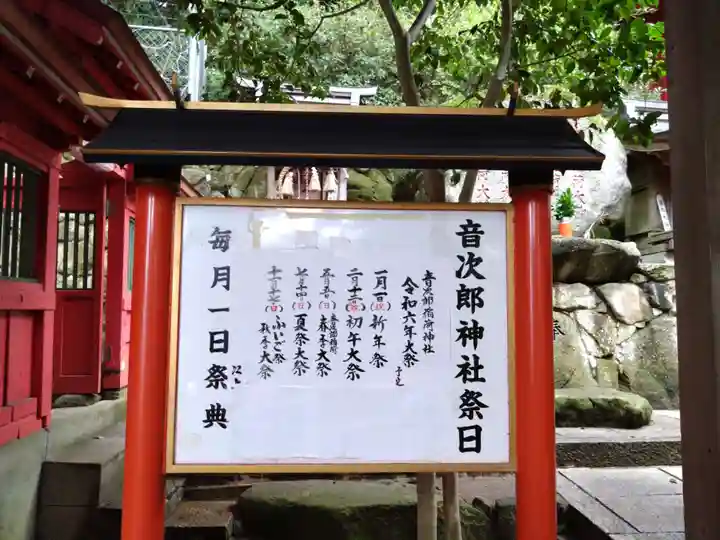 音次郎神社祭日
音次郎稲荷神社
令和六年大祭
予定
一月一日(祝)新年祭
二月十二(祭)初午大祭
五月五(日)春季大祭
七月十四(日)夏祭大祭
十一月十七(日)ふいご祭
秋季大祭
毎月一日祭典